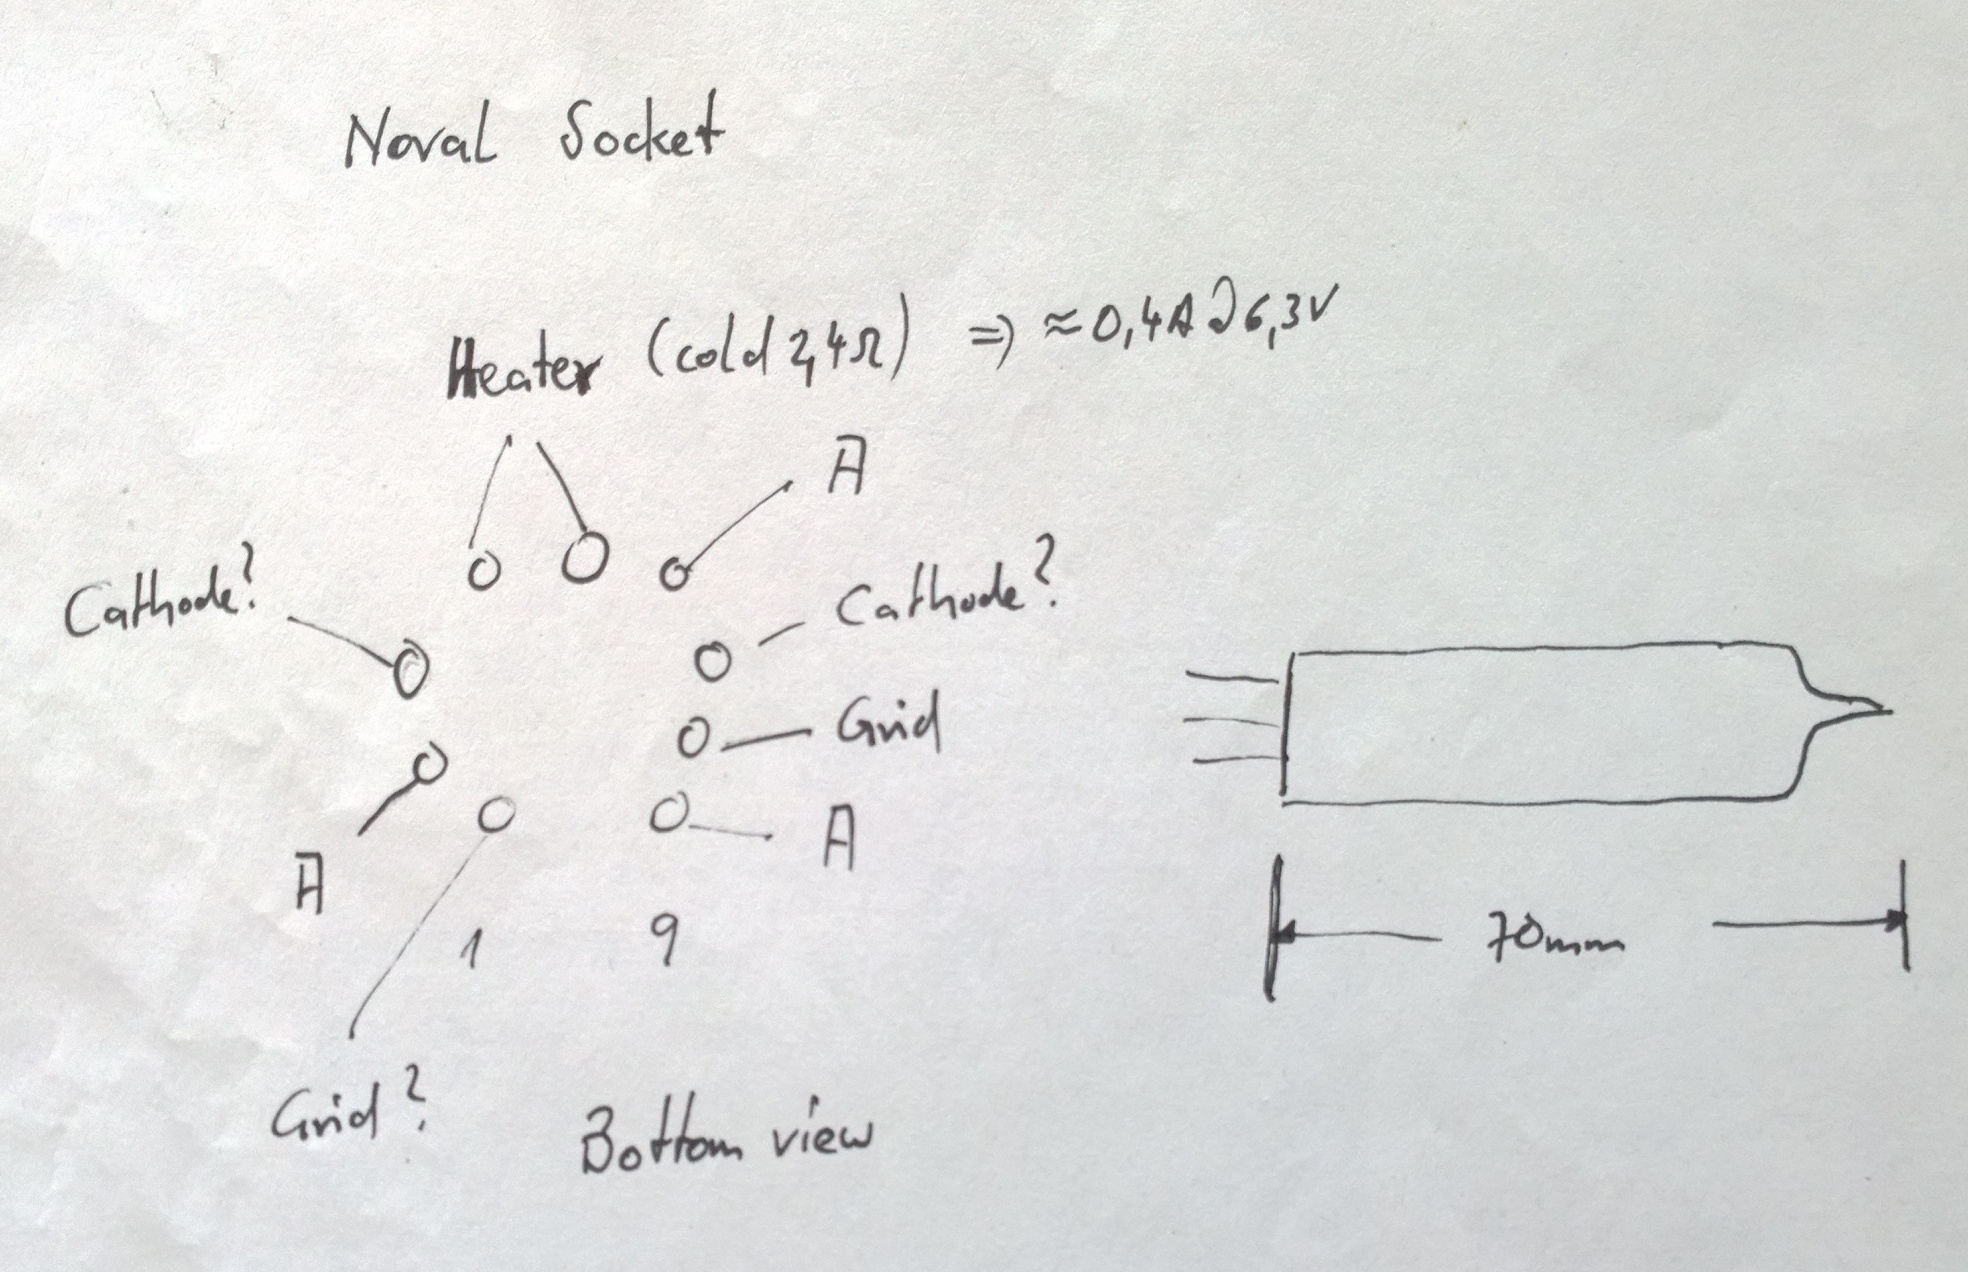 Noval Socket
Heater (cold 2,4Ω) ⇒ ≈0,4A @ 6,3V
A
Cathode?
Cathode?
Grid
A
A
1 9
70mm
Grid?
Bottom view